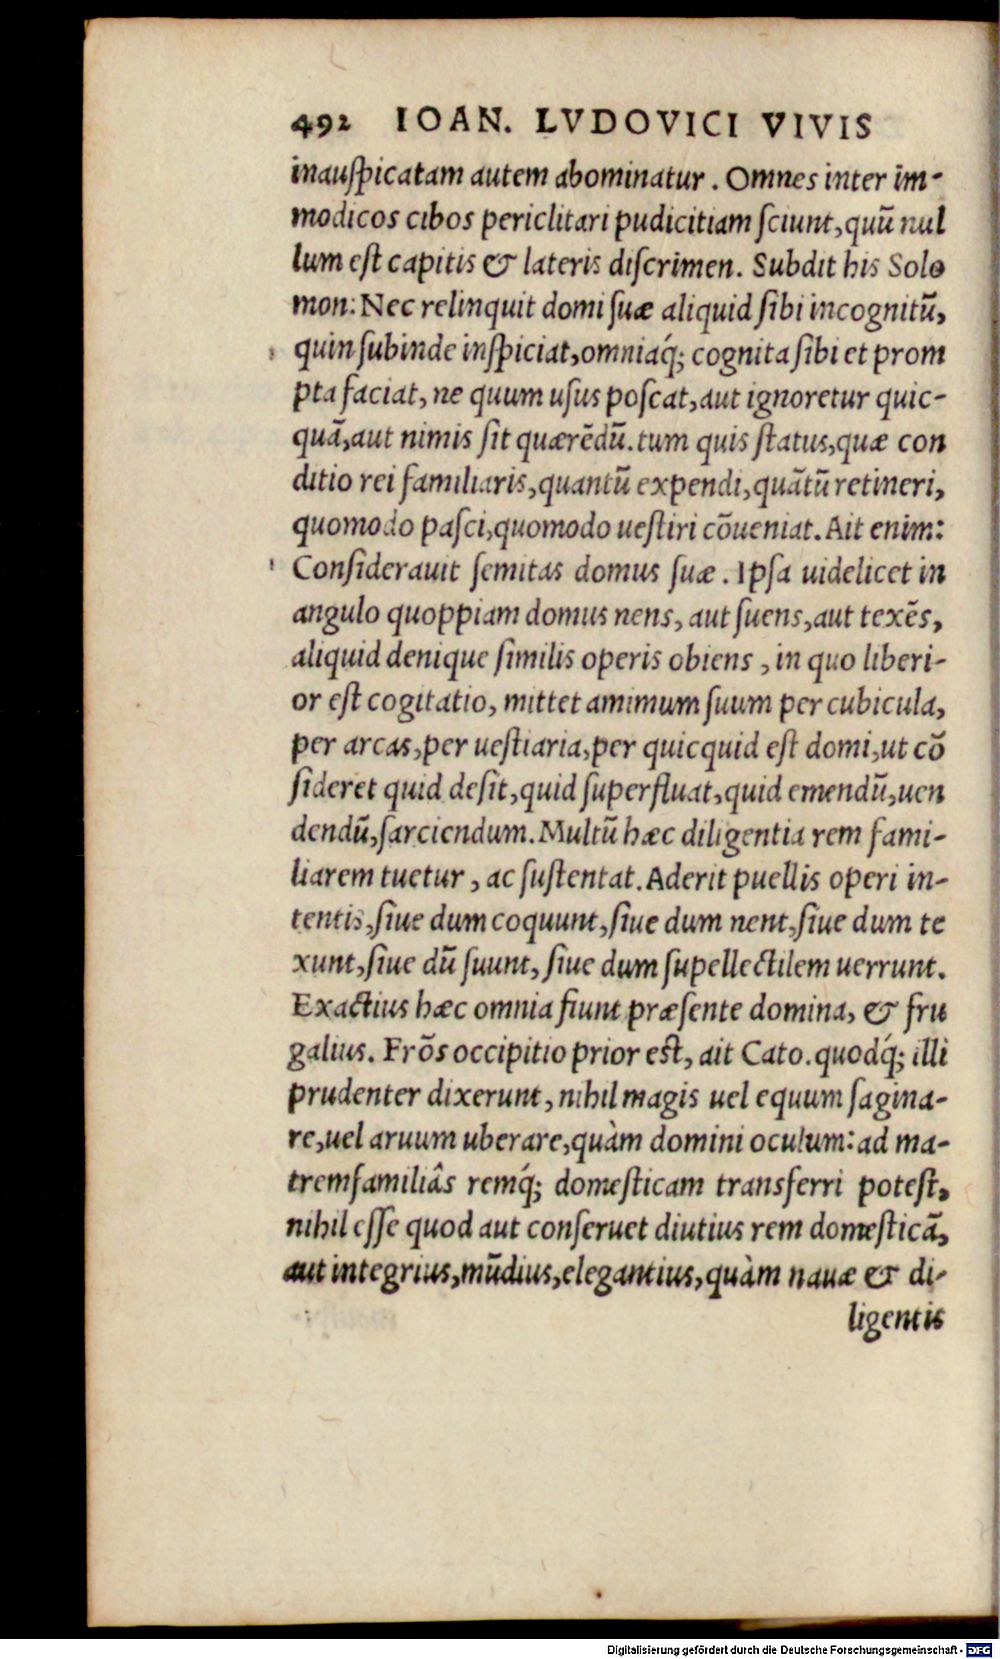 492 IOAN. LVDOVICI VIVIS
inauſpicatam autem abominatur. Omnes inter im-
modicos cibos periclitari pudicitiam ſciunt, quū nul
lum eſt capitis & lateris diſcrimen. Subdit his Solo
mon: Nec relinquit domi ſuæ aliquid ſibi incognitū,
quin ſubinde inſpiciat, omniaq́; cognita ſibi et prom
pta faciat, ne quum uſus poſcat, aut ignoretur quic-
quā, aut nimis ſit quærēdū. tum quis ſtatus, quæ con
ditio rei familiaris, quantū expendi, quātū retineri,
quomodo paſci, quomodo ueſtiri cōueniat. Ait enim:
Conſiderauit ſemitas domus ſuæ. Ipſa uidelicet in
angulo quoppiam domus nens, aut ſuens, aut texēs,
aliquid denique ſimilis operis obiens, in quo liberi-
or eſt cogitatio, mittet amimum ſuum per cubicula,
per arcas, per ueſtiaria, per quicquid eſt domi, ut cō
ſideret quid deſit, quid superfluat, quid emendū, uen
dendū, ſarciendum. Multū hæc diligentia rem fami-
liarem tuetur, ac ſuſtentat. Aderit puellis operi in-
tentis, ſiue dum coquunt, ſiue dum nent, ſiue dum te
xunt, ſiue dū ſuunt, ſiue dum ſupellectilem uerrunt.
Exactius hæc omnia fiunt præſente domina, & fru
galius. Frōs occipitio prior eſt, ait Cato. quodq́; illi
prudenter dixerunt, nihil magis uel equum ſagina-
re, uel aruum uberare, quàm domini oculum: ad ma-
tremfamiliâs remq́; domeſticam transferri poteſt,
nihil eſſe quod aut conſeruet diutius rem domeſticā,
aut integrius, mūdius, elegantius, quàm nauæ & di-
ligentis
Digitalisierung gefördert durch die Deutsche Forschungsgemeinschaft - DFG